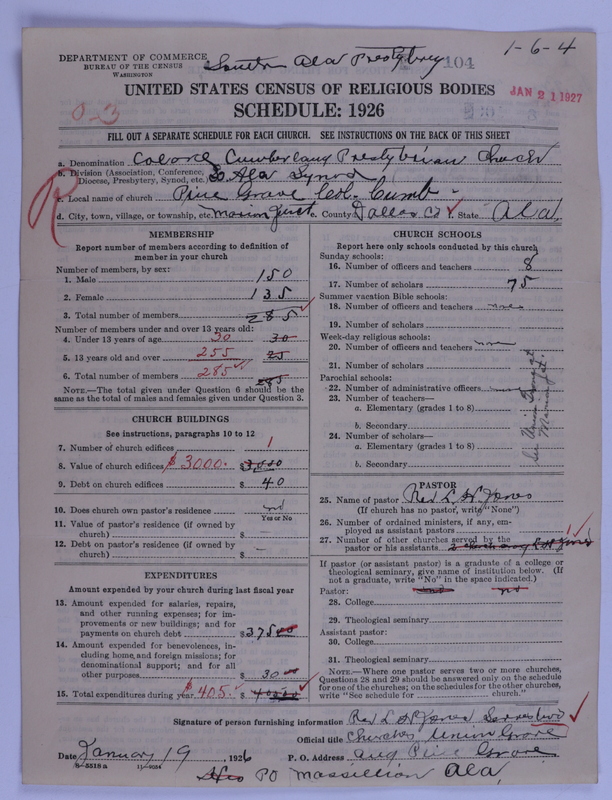 1-6-4
DEPARTMENT OF COMMERCE
South Ala Presbytrey
104
BUREAU OF THE CENSUS
WASHINGTON
UNITED STATES CENSUS OF RELIGIOUS BODIES
JAN 21 1927
SCHEDULE: 1926
0-3
FILL OUT A SEPARATE SCHEDULE FOR EACH CHURCH. SEE INSTRUCTIONS ON THE BACK OF THIS SHEET
R
a. Denomination Colored Cumberlang Presbyterian Church
b. Division (Association, Conference, Diocese, Presbytery, Synod, etc.) So Ala Synod
c. Local name of church Pine Grove Col. Cumb
d. City, town, village, or township, etc. Marion Junt e. County Dallas Co State Ala
MEMBERSHIP
Report number of members according to definition of member in your church
Number of members, by sex:
1. Male 150
2. Female 135
3. Total number of members 285
Number of members under and over 13 years old:
4. Under 13 years of age 30 30
5. 13 years old and over 255 25
6. Total number of members 285 285
NOTE.—The total given under Question 6 should be the same as the total of males and females given under Question 3.
CHURCH BUILDINGS
See instructions, paragraphs 10 to 12
7. Number of church edifices 1
8. Value of church edifices $3000. $3000
9. Debt on church edifices $ 40
10. Does church own pastor's residence
Yes or No
11. Value of pastor's residence (if owned by church) $ —
12. Debt on pastor's residence (if owned by church) $ —
EXPENDITURES
Amount expended by your church during last fiscal year
13. Amount expended for salaries, repairs, and other running expenses; for improvements or new buildings; and for payments on church debt $375 00
14. Amount expended for benevolences, including home and foreign missions; for denominational support; and for all other purposes $ 30 00
15. Total expenditures during year $405. $
CHURCH SCHOOLS
Report here only schools conducted by this church
Sunday schools:
16. Number of officers and teachers 8
17. Number of scholars 75
Summer vacation Bible schools:
18. Number of officers and teachers none
19. Number of scholars
Week-day religious schools:
20. Number of officers and teachers none
21. Number of scholars
Parochial schools:
22. Number of administrative officers
23. Number of teachers—
a. Elementary (grades 1 to 8)
b. Secondary
24. Number of scholars—
a. Elementary (grades 1 to 8)
b. Secondary
PASTOR
25. Name of pastor Rev L. H. Jones
(If church has no pastor, write "None")
26. Number of ordained ministers, if any, employed as assistant pastors
27. Number of other churches served by the pastor or his assistants
If pastor (or assistant pastor) is a graduate of a college or theological seminary, give name of institution below. (If not a graduate, write "No" in the space indicated.)
Pastor:
28. College
29. Theological seminary
Assistant pastor:
30. College
31. Theological seminary
NOTE.—Where one pastor serves two or more churches, Questions 28 and 29 should be answered only on the schedule for one of the churches; on the schedules for the other churches, write "See schedule for church."
Signature of person furnishing information Rev L H Jones
Official title Churches Union Grove
Date January 19, 1926 P. O. Address aug Pine Grove
8-5518a 11-9054
PO Massillian Ala